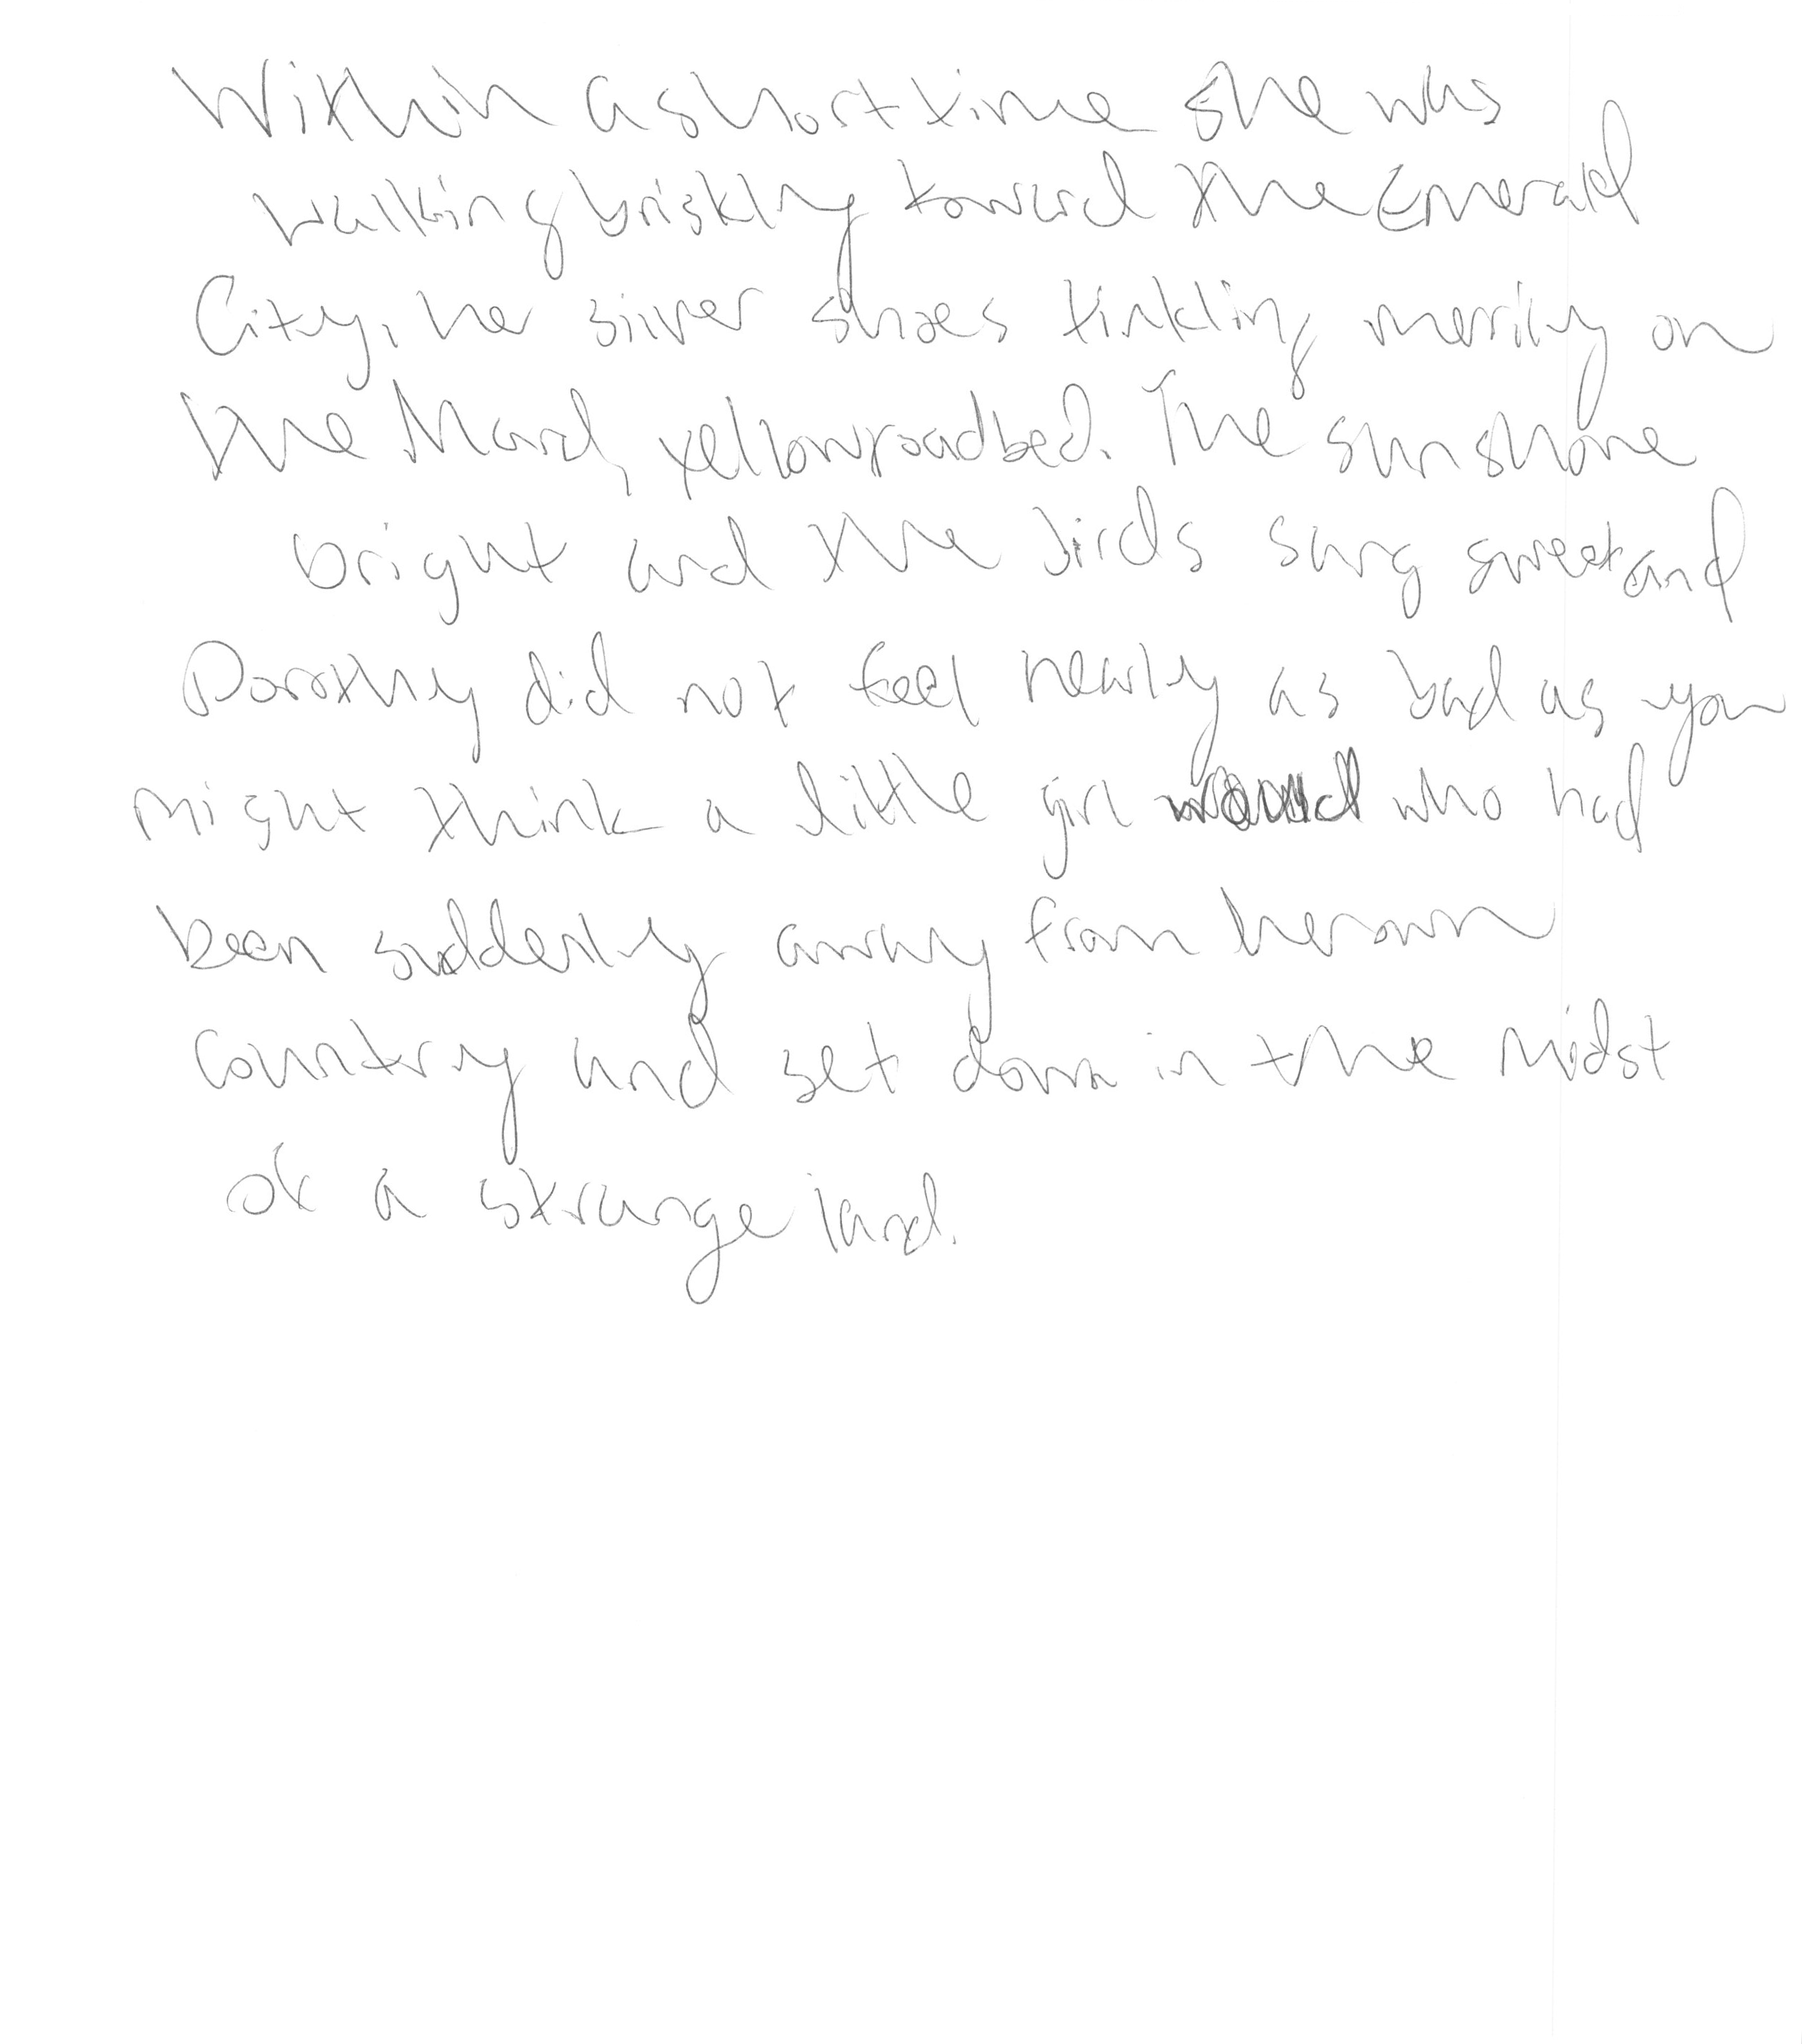 Within a short time she was
walking briskly toward the Emerald
City, her silver shoes tinkling merrily on
the hard, yellow roadbed. The sun shone
bright and the birds sang sweet and
Dorothy did not feel nearly as bad as you
might think a little girl who had
been suddenly away from her own
country and set down in the midst
of a strange land.